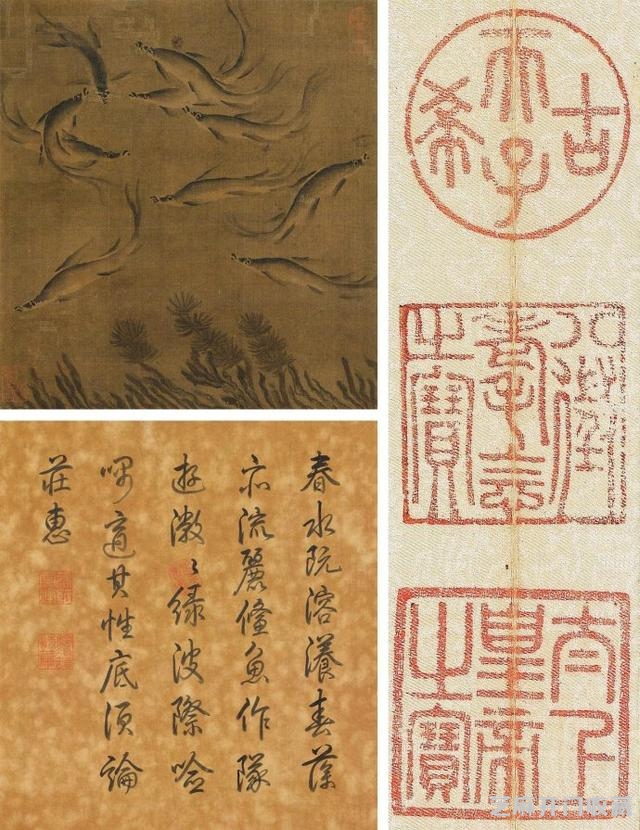 春水溶瀁春藻
亦流麗鯈魚作隊
游綠波際唫
喁適其性底須論
莊惠
古希天子
八徵耄念之寶
太上皇帝之寶